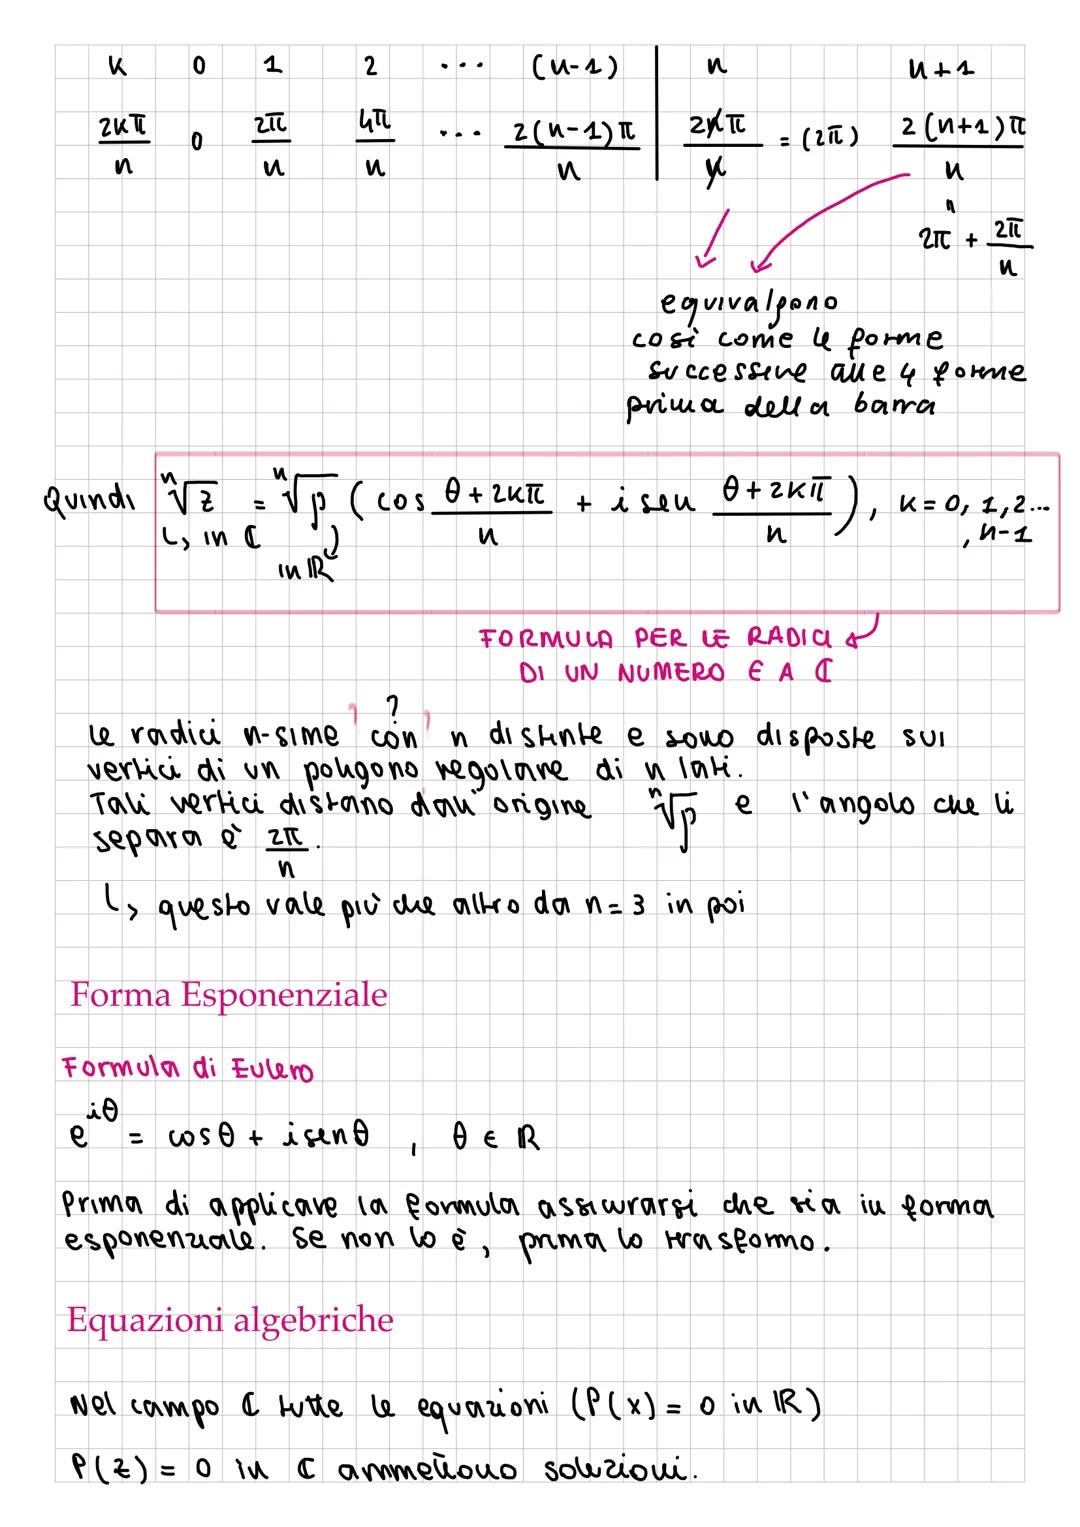 K 0 1 2 ... (n-1) | n n+1
2Kπ/n 0 2π/n 4π/n ... 2(n-1)π/n | 2nπ/n = (2π) 2(n+1)π/n
" 2π + 2π/n
equivalgono
così come le forme
successive alle 4 forme
prima della barra
Quindi ⁿ√z = ⁿ√ρ (cos (θ+2Kπ)/n + i sen (θ+2Kπ)/n), K = 0, 1, 2...
↳ in ℂ , n-1
in ℝ
FORMULA PER LE RADICI
DI UN NUMERO ∈ A ℂ
?
le radici n-sime ? con ? n distinte e sono disposte sui
vertici di un poligono regolare di n lati.
Tali vertici distano dall'origine ⁿ√ρ e l'angolo che li
separa è 2π/n.
↳ questo vale più che altro da n=3 in poi
Forma Esponenziale
Formula di Eulero
e^iθ = cosθ + isenθ , θ ∈ ℝ
Prima di applicare la formula assicurarsi che sia in forma
esponenziale. Se non lo è, prima lo trasformo.
Equazioni algebriche
Nel campo ℂ tutte le equazioni (P(x) = 0 in ℝ)
P(z) = 0 in ℂ ammettono soluzioni.